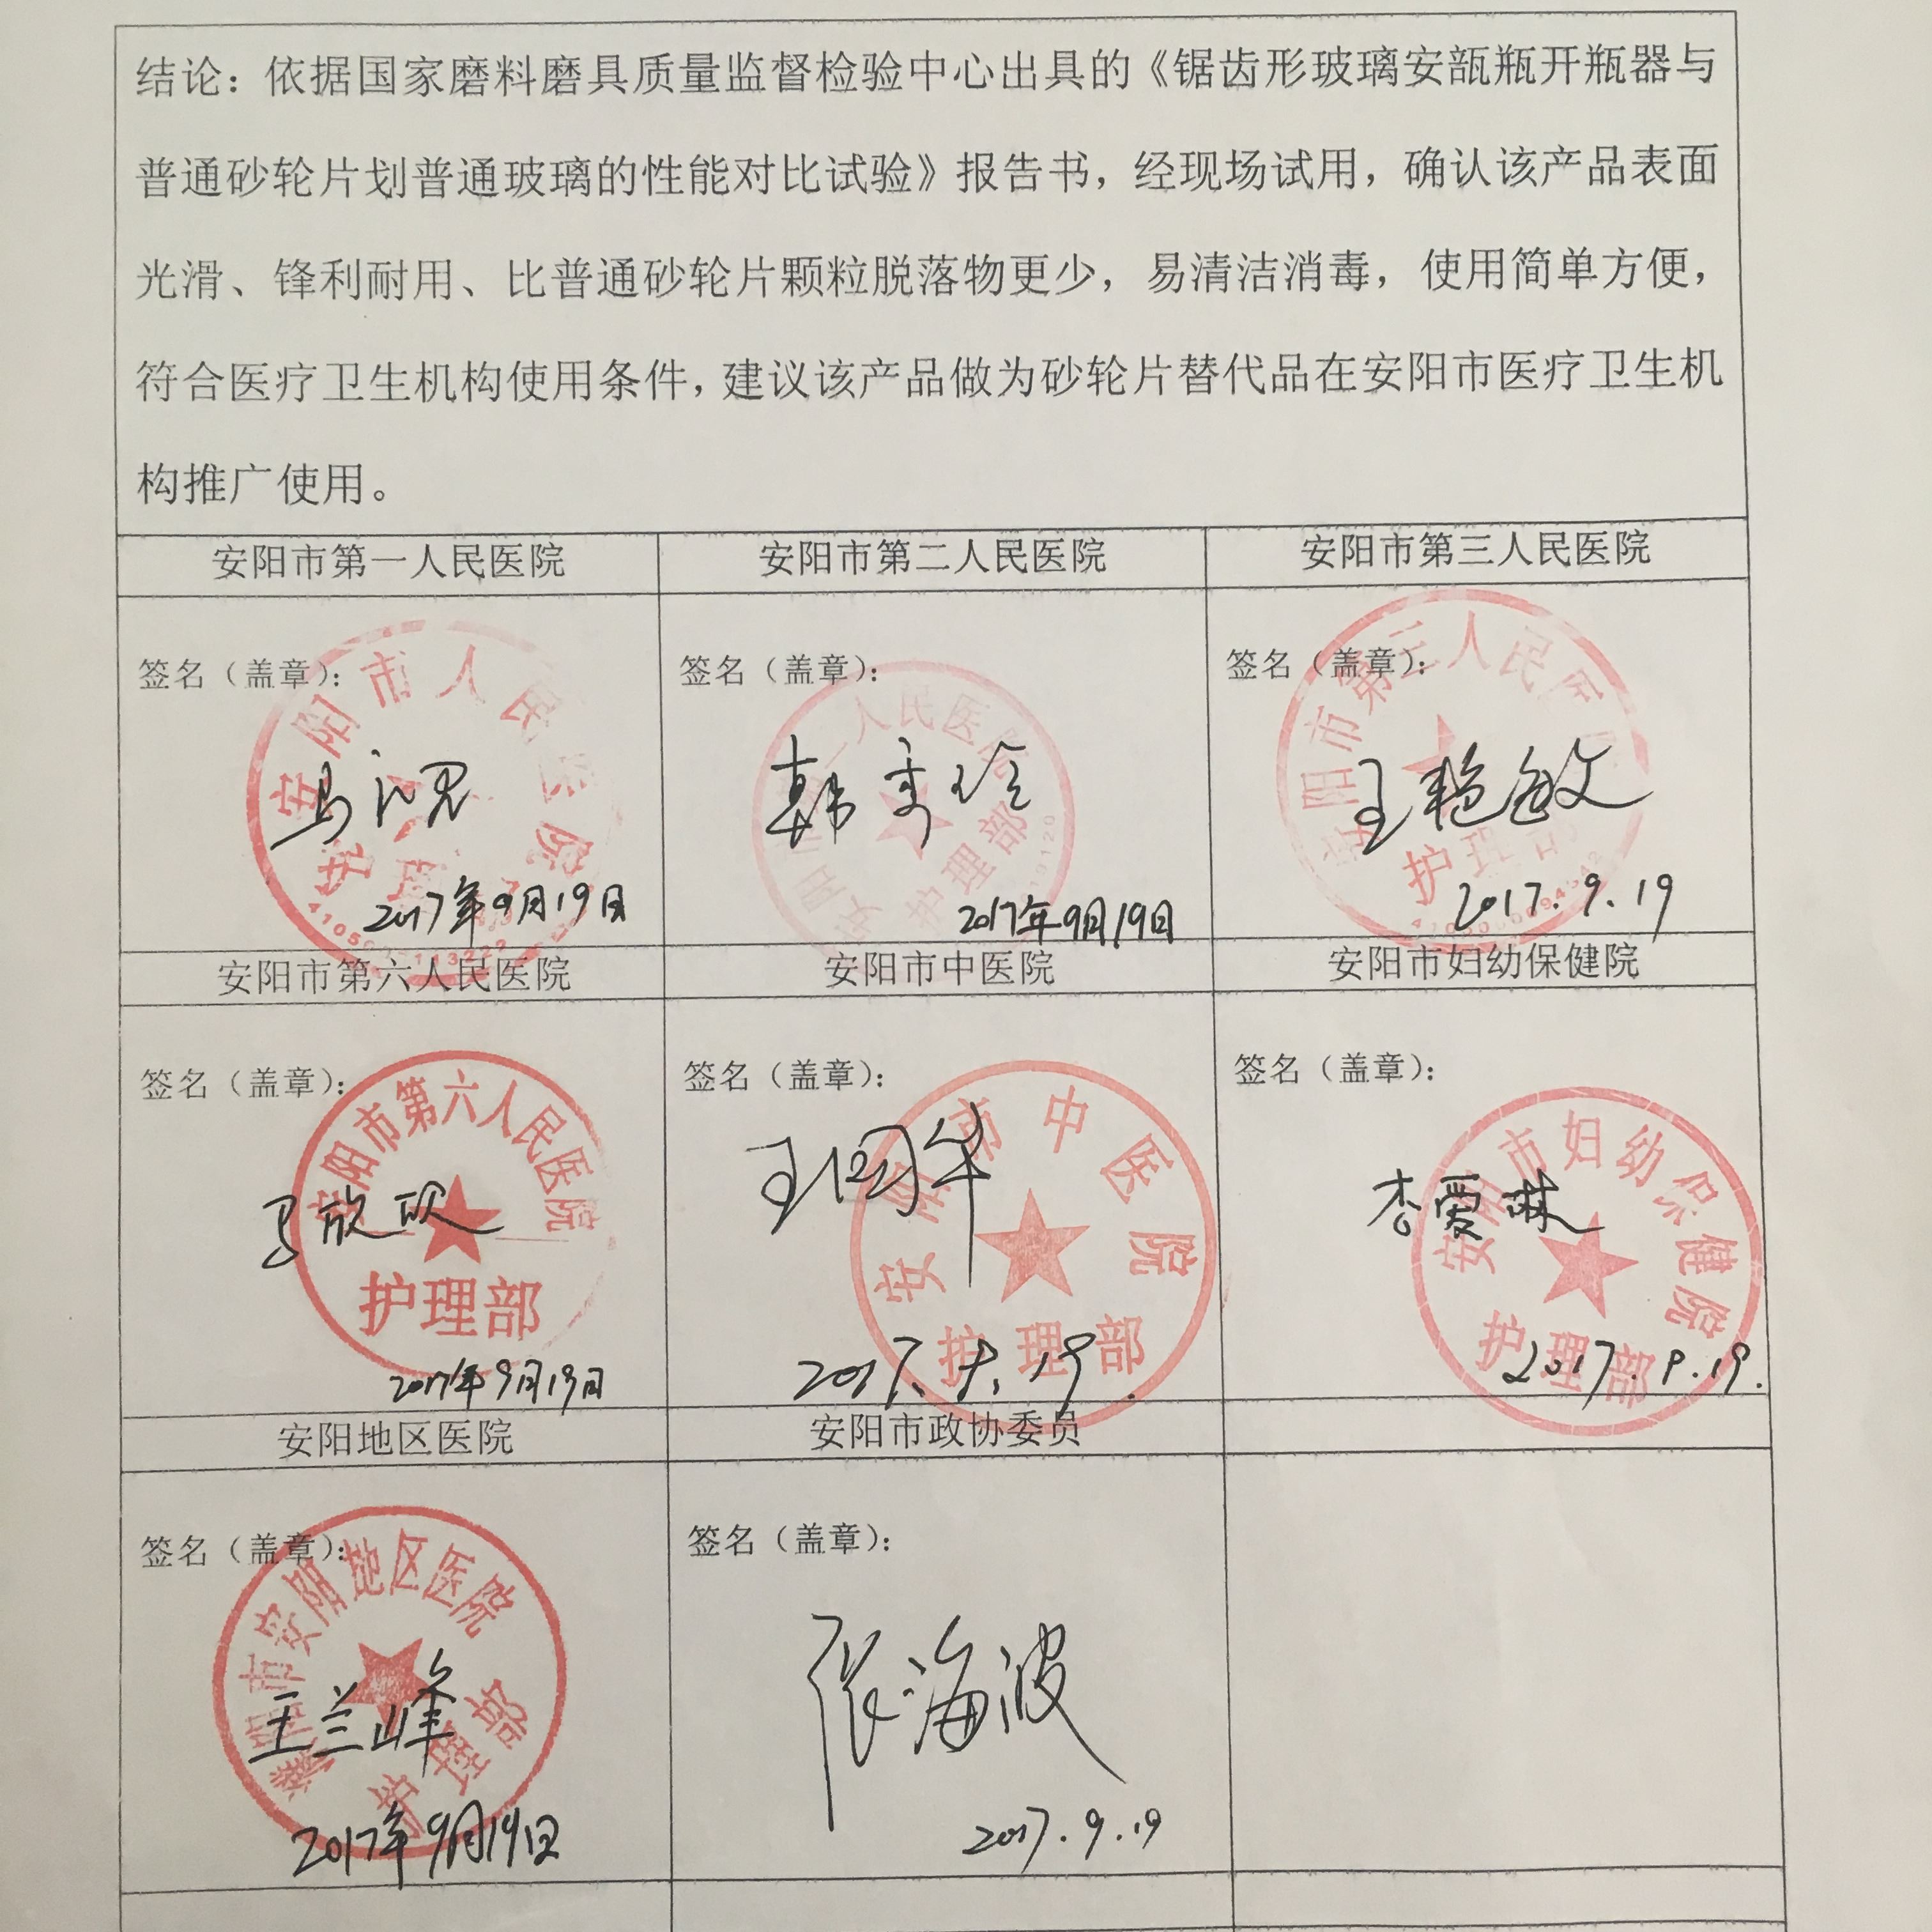 结论：依据国家磨料磨具质量监督检验中心出具的《锯齿形玻璃安瓿瓶开瓶器与
普通砂轮片划普通玻璃的性能对比试验》报告书，经现场试用，确认该产品表面
光滑、锋利耐用、比普通砂轮片颗粒脱落物更少，易清洁消毒，使用简单方便，
符合医疗卫生机构使用条件，建议该产品做为砂轮片替代品在安阳市医疗卫生机
构推广使用。
安阳市第一人民医院
安阳市第二人民医院
安阳市第三人民医院
签名（盖章）：
签名（盖章）：
签名（盖章）：
安阳市人民医院
人民医院
阳市第三人民医
韩秀玲
王艳敏
护理部
护理
2017年9月19日
2017年9月19日
2017.9.19
安阳市第六人民医院
安阳市中医院
安阳市妇幼保健院
签名（盖章）：
签名（盖章）：
签名（盖章）：
安阳市第六人民医院
安阳市中医院
安阳市妇幼保健院
李爱琳
护理部
护理部
护理部
2017年9月19日
2017.9.19.
2017.9.19.
安阳地区医院
安阳市政协委员
签名（盖章）：
签名（盖章）：
市安阳地区医院
王兰峰
张海波
护理部
2017年9月19日
2017.9.19